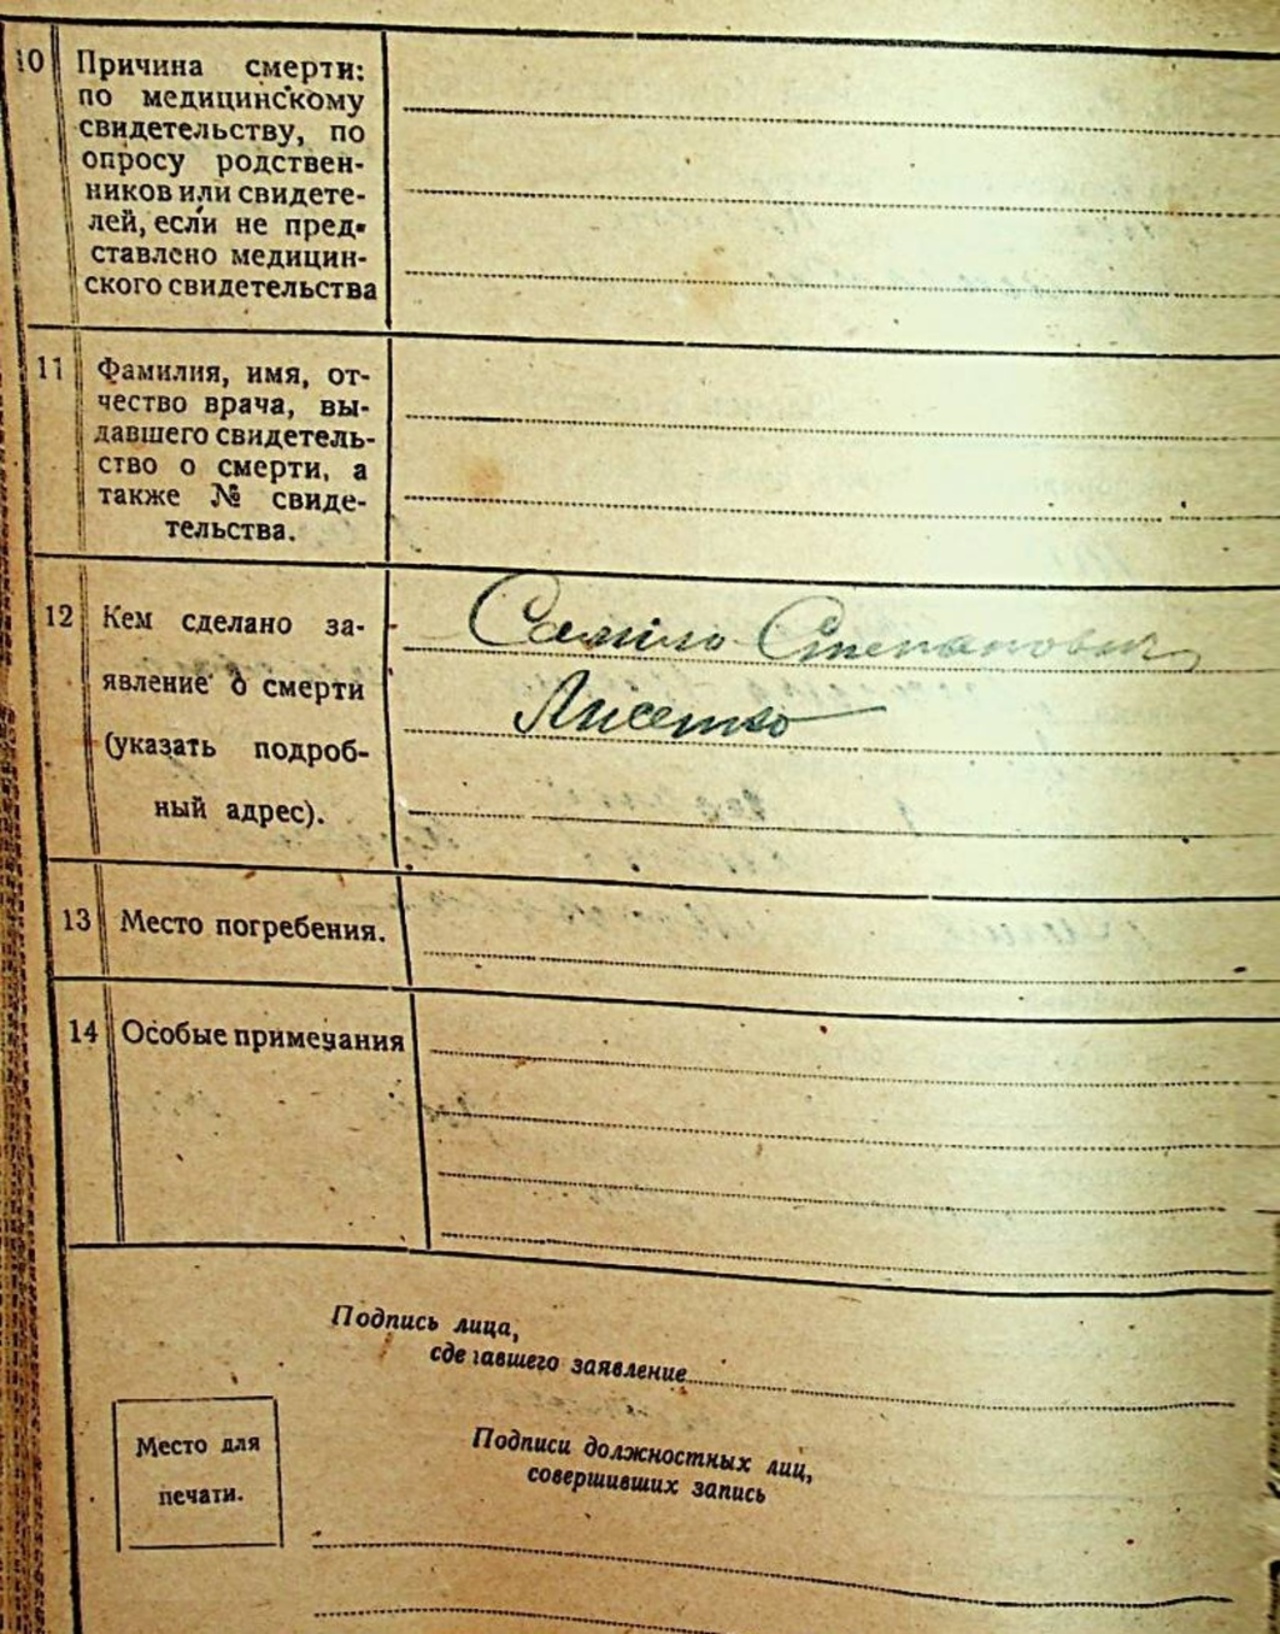 10 Причина смерти:
по медицинскому
свидетельству, по
опросу родствен-
ников или свидете-
лей, если не пред-
ставлено медицин-
ского свидетельства
11 Фамилия, имя, от-
чество врача, вы-
давшего свидетель-
ство о смерти, а
также № свиде-
тельства.
12 Кем сделано за-
явление о смерти
(указать подроб-
ный адрес).
Степанович
13 Место погребения.
14 Особые примечания
Подпись лица,
сделавшего заявление
Место для
печати.
Подписи должностных лиц,
совершивших запись